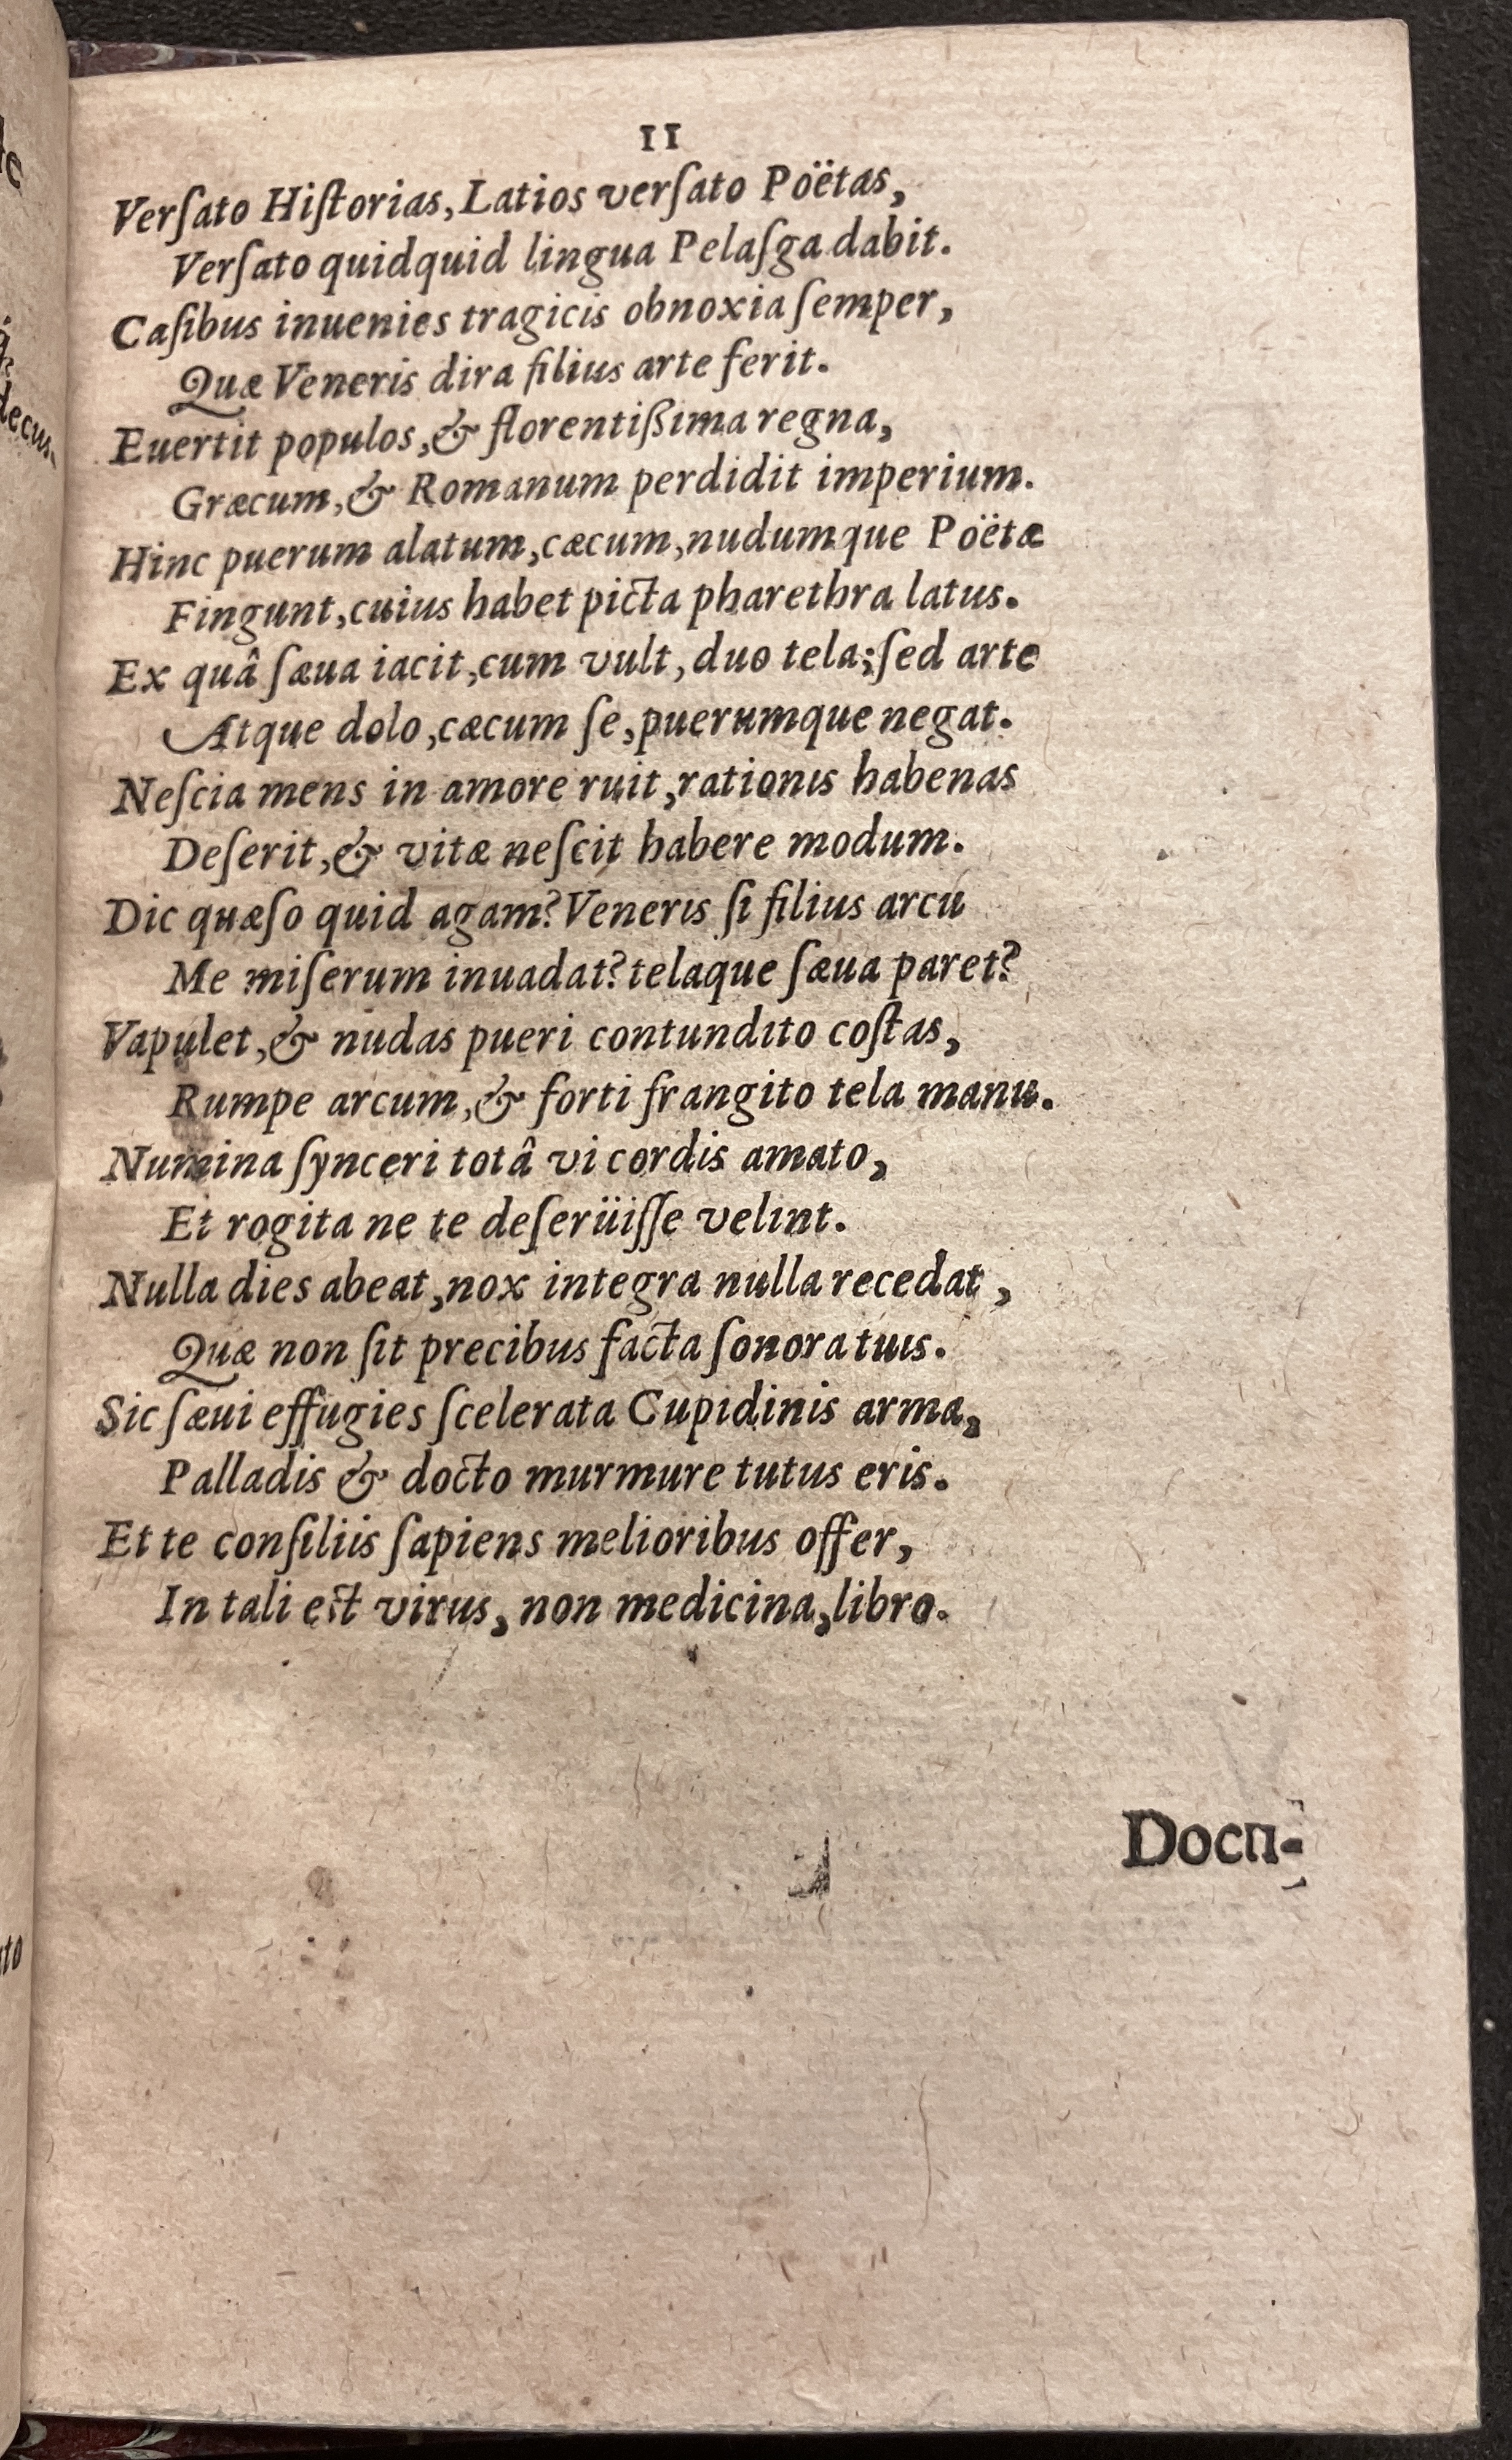 11
Verſato Hiſtorias, Latios verſato Poëtas,
Verſato quidquid lingua Pelaſga dabit.
Caſibus inuenies tragicis obnoxia ſemper,
Quæ Veneris dira filius arte ferit.
Euertit populos, & florentiſsima regna,
Græcum, & Romanum perdidit imperium.
Hinc puerum alatum, cæcum, nudumque Poëtæ
Fingunt, cuius habet picta pharethra latus.
Ex quâ ſæua iacit, cum vult, duo tela; ſed arte
Atque dolo, cæcum ſe, puerumque negat.
Neſcia mens in amore ruit, rationis habenas
Deſerit, & vitæ neſcit habere modum.
Dic quæſo quid agam? Veneris ſi filius arcu
Me miſerum inuadat? telaque ſæua paret?
Vapulet, & nudas pueri contundito coſtas,
Rumpe arcum, & forti frangito tela manu.
Numina ſynceri totâ vi cordis amato,
Et rogita ne te deſerüiſſe velint.
Nulla dies abeat, nox integra nulla recedat,
Quæ non ſit precibus facta ſonora tuis.
Sic ſæui effugies ſcelerata Cupidinis arma,
Palladis & docto murmure tutus eris.
Et te conſiliis ſapiens melioribus offer,
In tali eſt virus, non medicina, libro.
decus